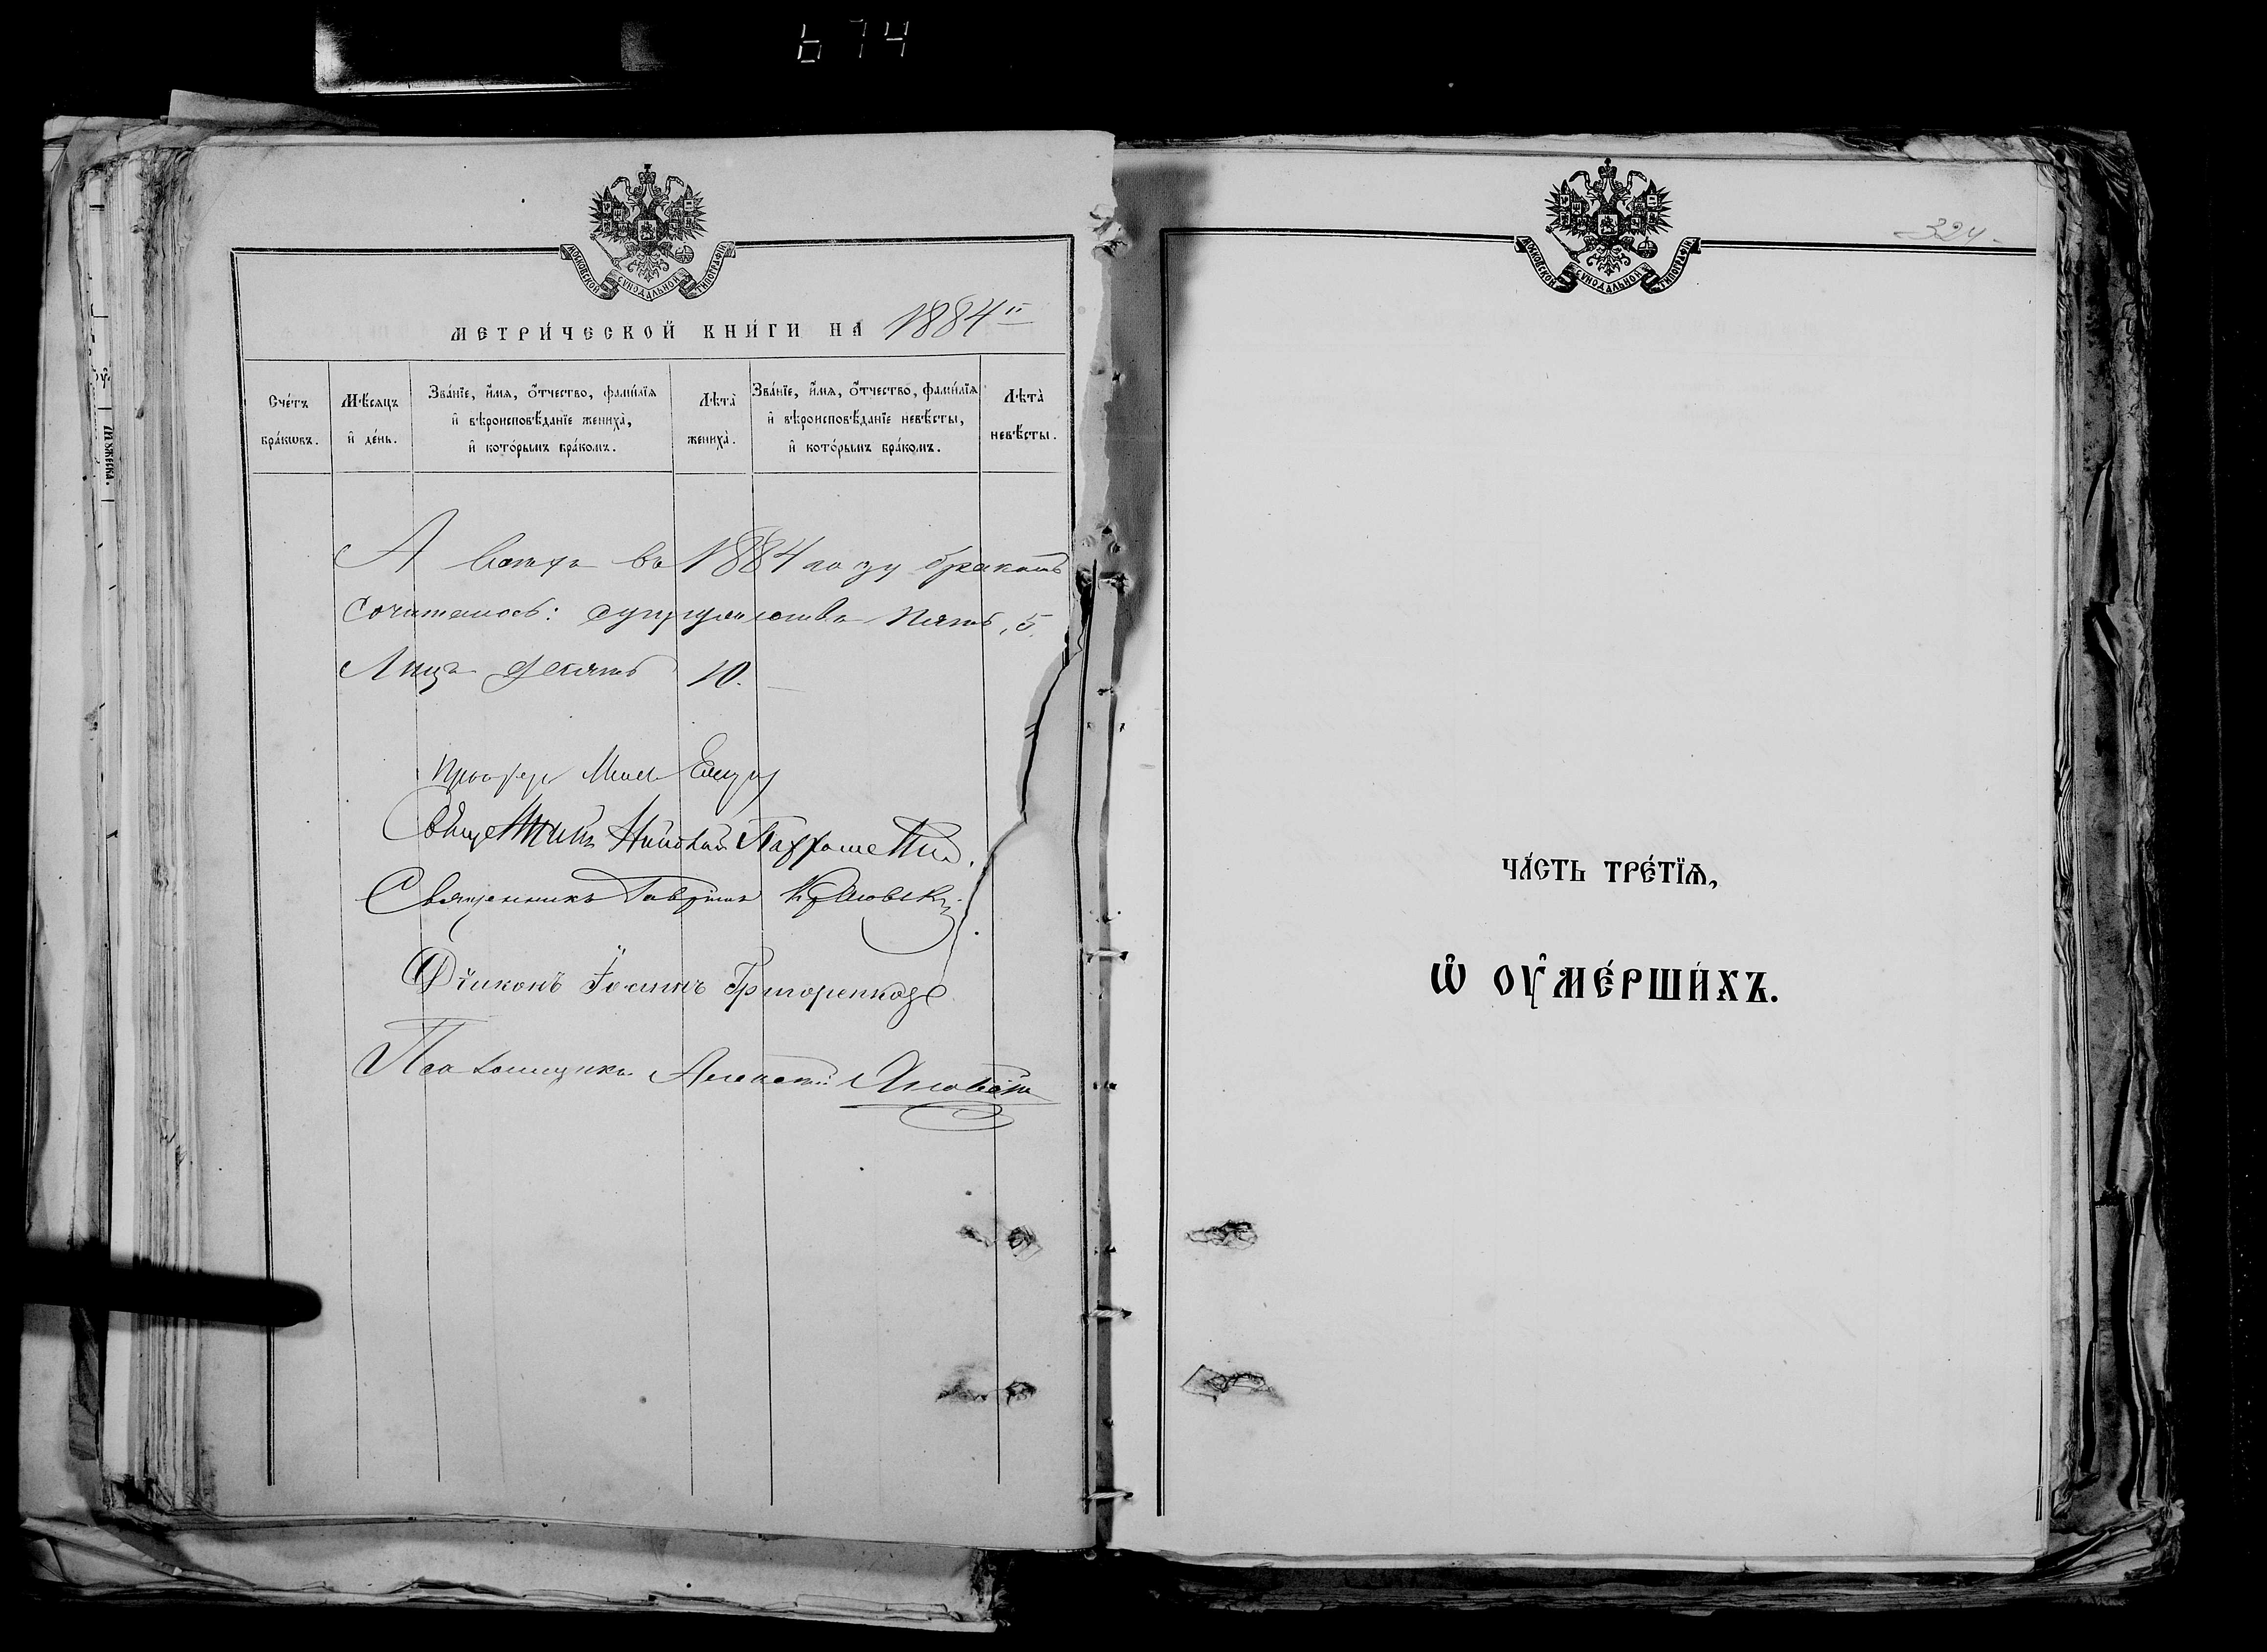 674
МОСКОВСКОЙ СѴНОДАЛЬНОЙ ТИПОГРАФІИ
МЕТРИ́ЧЕСКОЙ КНИ́ГИ НА 1884й
Сче́тъ бра́кωвъ.
Мѣ́сяцъ и҆ де́нь.
Зва́нїе, и҆́мя, о҆́тчество, фами́лїя
и҆ вѣроисповѣ́данїе жениха̀,
и҆ кото́рымъ бра́комъ.
Лѣта̀ жениха̀.
Зва́нїе, и҆́мя, о҆́тчество, фами́лїя
и҆ вѣроисповѣ́данїе невѣ́сты,
и҆ кото́рымъ бра́комъ.
Лѣта̀ невѣ́сты.
А всего въ 1884 году бракомъ
сочиталось: супружества пять, 5.
Лица десять 10.
Священникъ Николай
Священникъ Гавріилъ
Діаконъ Іоаннъ Григоренко
Псаломщикъ Алексѣй
МОСКОВСКОЙ СѴНОДАЛЬНОЙ ТИПОГРАФІИ
324
ЧА́СТЬ ТРЕ́ТЇѦ,
Ѡ҆ ОУ҆МЕ́РШИХЪ.